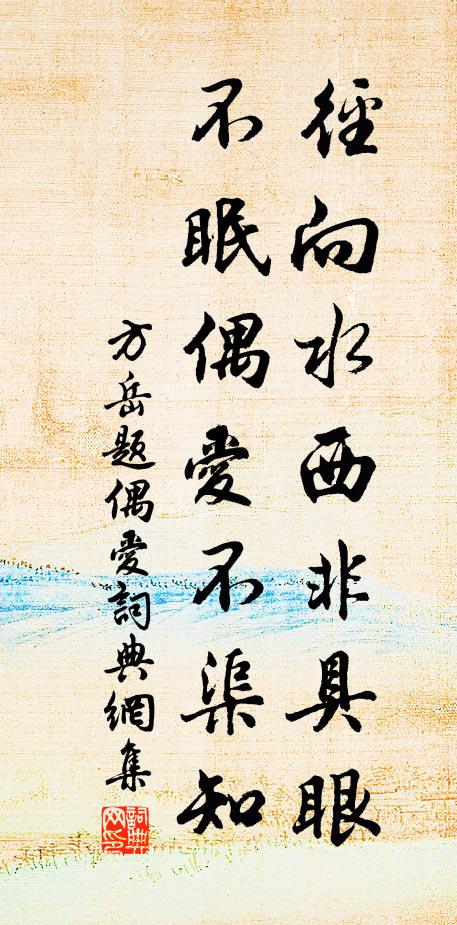 徑向水西非具眼
不眠偶愛不渠知
方岳題偶愛詞典網集
詞典
网印